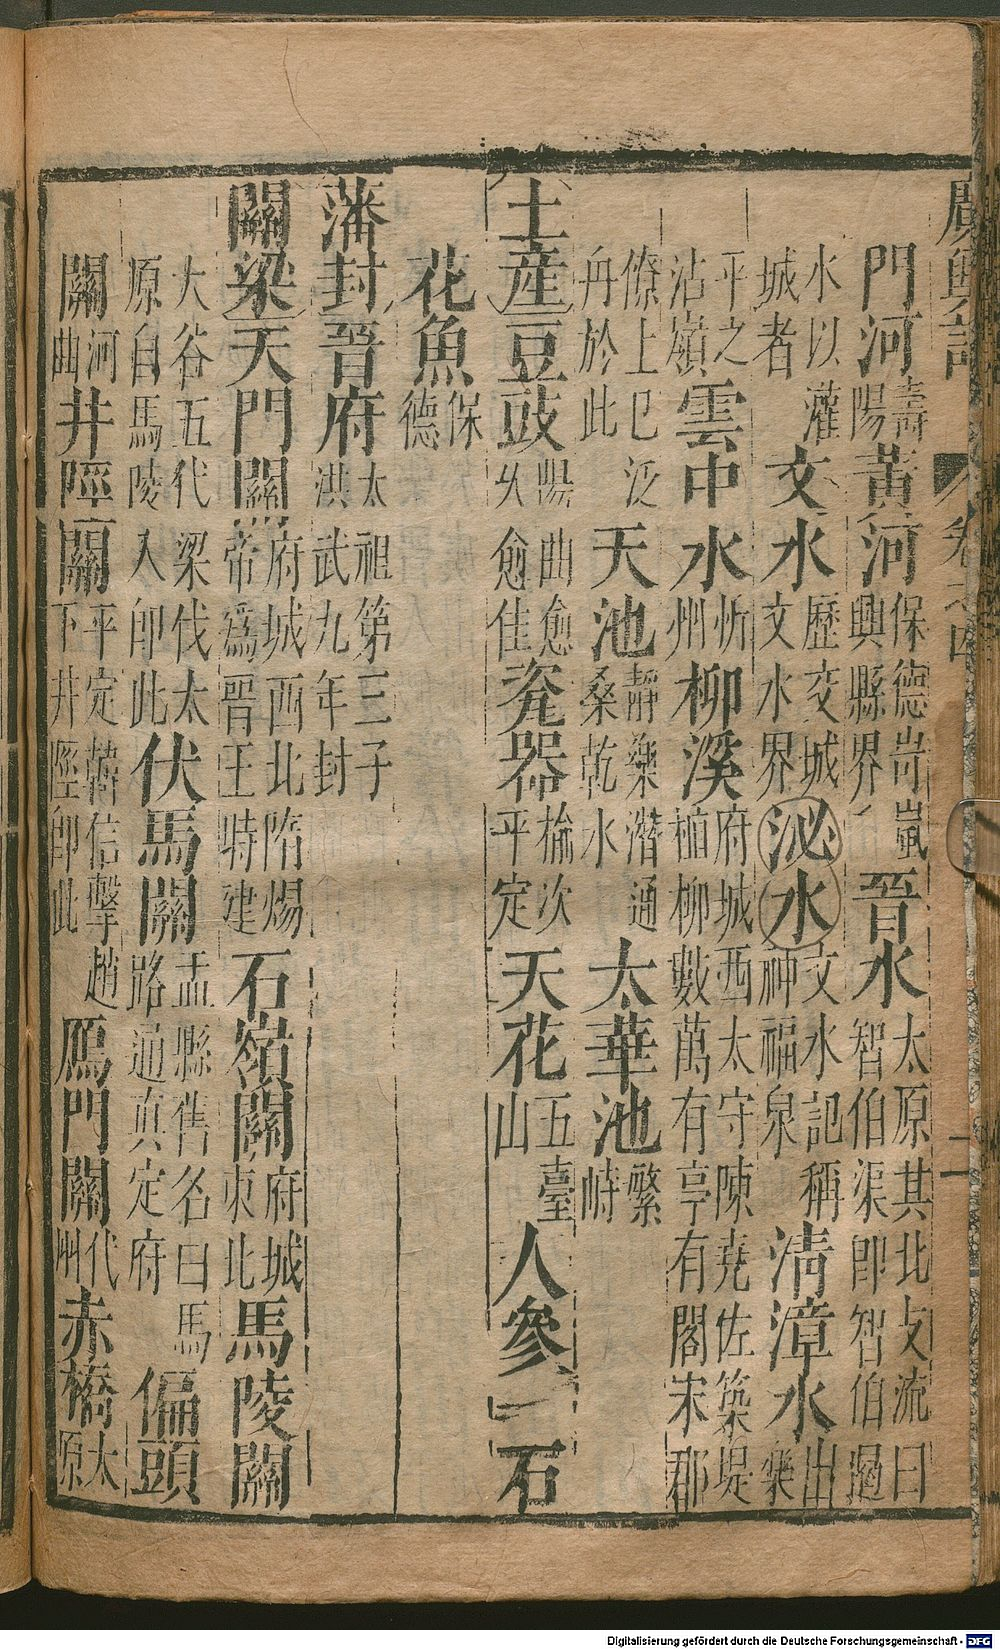 廣輿記 卷之四 二
門河壽陽黃河保德岢嵐興縣界晉水太原其北攴流曰智伯渠即智伯遏
水以灌城者文水歷交城文水界泌水文水記稱神福泉清漳水出樂
平之沾嶺雲中水忻州柳溪府城西太守陳堯佐築堤植柳數萬有亭有閣宋郡
僚上巳泛舟於此天池靜樂潛通桑乾水太華池繁峙
土産豆豉陽曲愈久愈佳瓷器榆次平定天花五臺山人參石
花魚保德
藩封晉府太祖第三子洪武九年封
關梁天門關府城西北隋煬帝爲晉王時建石嶺關府城東北馬陵關
大谷五代梁伐太原自馬陵入即此伏馬關盂縣售名曰馬路通真定府偏頭
關河曲井陘關平定韓信擊趙下井陘即此鴈門關代州赤橋太原
Digitalisierung gefördert durch die Deutsche Forschungsgemeinschaft - DFG